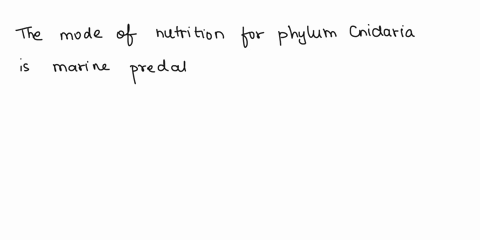 The mode of nutrition for phylum Cnidaria
is marine predal